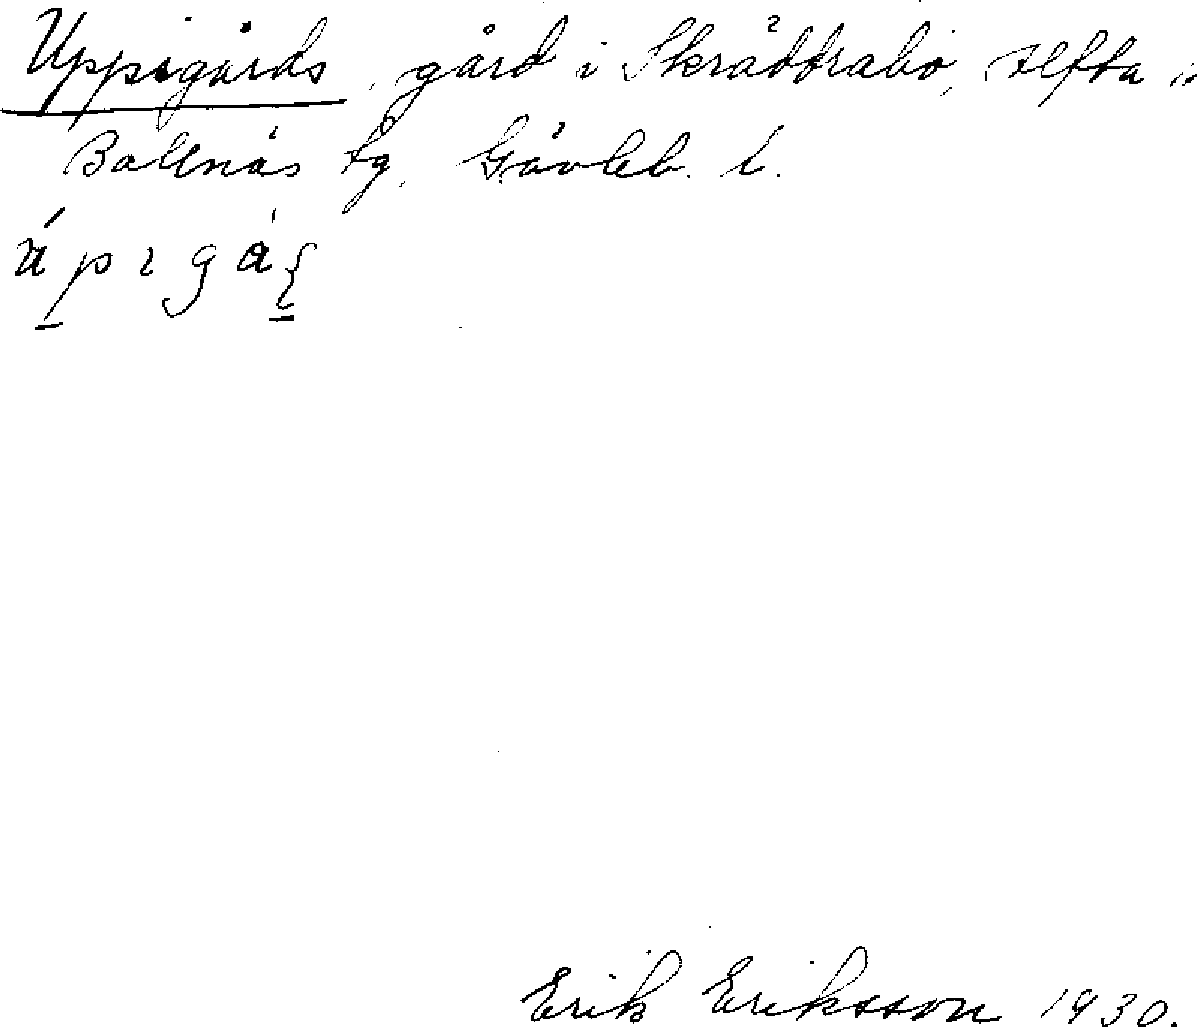 Uppigårds, gård i Skräddrabo, Alfta s
Bollnäs tg. Gävleb. l.
Erik Eriksson 1930.